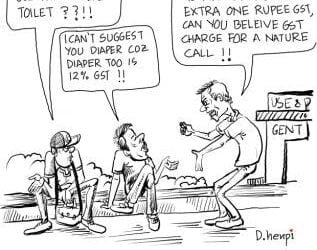 TOILET ??!!
I CAN'T SUGGEST
YOU DIAPER COZ
DIAPER TOO IS
12% GST !!
EXTRA ONE RUPEE GST,
CAN YOU BELEIVE GST
CHARGE FOR A NATURE
CALL !!
USE & P
GENT
D.henpi